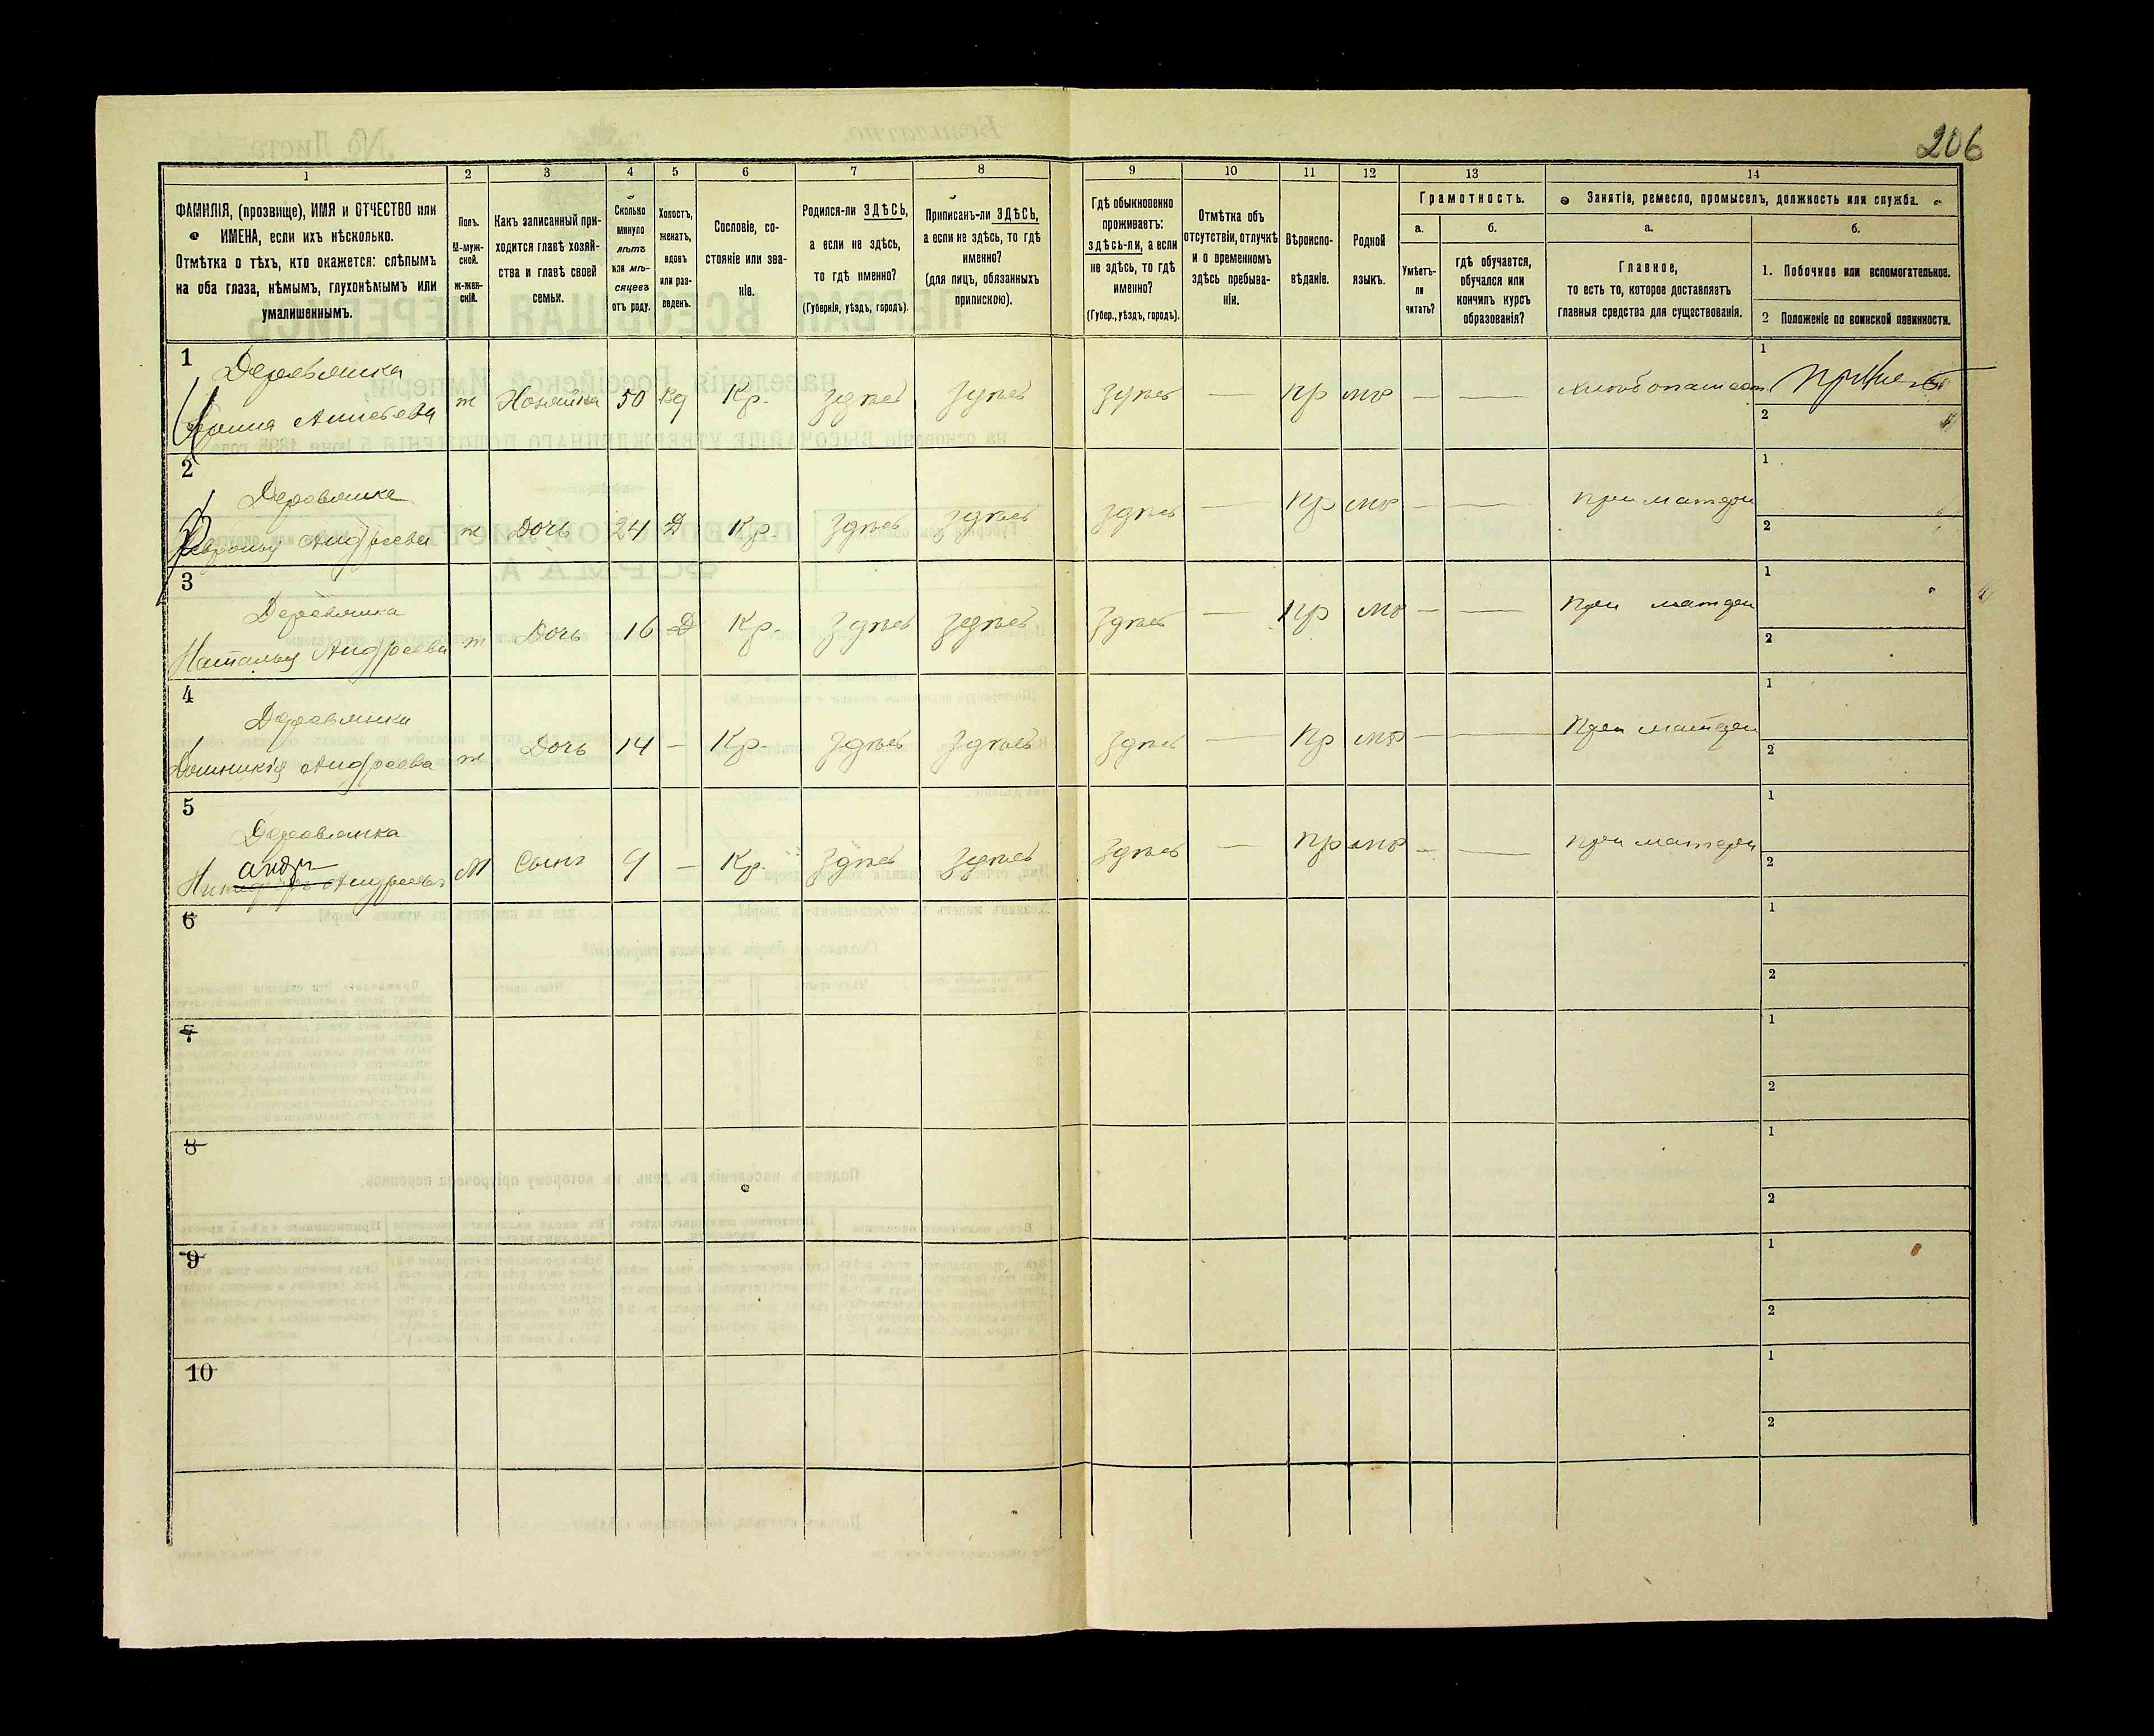 206
1 2 3 4 5 6 7 8 9 10 11 12 13 14
ФАМИЛІЯ, (прозвище), ИМЯ и ОТЧЕСТВО или
ИМЕНА, если ихъ нѣсколько.
Отмѣтка о тѣхъ, кто окажется: слѣпымъ
на оба глаза, нѣмымъ, глухонѣмымъ или
умалишеннымъ.
Полъ.
М-муж-
ской.
Ж-жен-
скій.
Какъ записанный при-
ходится главѣ хозяй-
ства и главѣ своей
семьи.
Сколько
минуло
лѣтъ
или мѣ-
сяцевъ
отъ роду.
Холостъ,
женатъ,
вдовъ
или раз-
веденъ.
Сословіе, со-
стояніе или зва-
ніе.
Родился-ли ЗДѢСЬ,
а если не здѣсь,
то гдѣ именно?
(Губернія, уѣздъ, городъ).
Приписанъ-ли ЗДѢСЬ,
а если не здѣсь, то гдѣ
именно?
(для лицъ, обязанныхъ
припискою).
Гдѣ обыкновенно
проживаетъ:
здѣсь-ли, а если
не здѣсь, то гдѣ
именно?
(Губер., уѣздъ, городъ).
Отмѣтка объ
отсутствіи, отлучкѣ
и о временномъ
здѣсь пребыва-
ніи.
Вѣроиспо-
вѣданіе.
Родной
языкъ.
Грамотность.
а.
Умѣетъ-
ли
читать?
б.
гдѣ обучается,
обучался или
кончилъ курсъ
образованія?
Занятіе, ремесло, промыселъ, должность или служба.
а.
Главное,
то есть то, которое доставляетъ
главныя средства для существованія.
б.
1. Побочное или вспомогательное.
2 Положеніе по воинской повинности.
1 Деревянка
ж Хозяйка 50 Вд Кр. здѣсь здѣсь здѣсь — Пр мр — — 1
2
2 Деревянка
Андреева ж Дочь 24 Д Кр. здѣсь здѣсь здѣсь — Пр мр — — при матери 1
2
3 Деревянка
Наталья Андреева ж Дочь 16 Д Кр. здѣсь здѣсь здѣсь — Пр мр — — при матери 1
2
4 Деревянка
Домникія Андреева ж Дочь 14 — Кр. здѣсь здѣсь здѣсь — Пр мр — — При матери 1
2
5 Деревянка
Андреевъ М Сынъ 9 — Кр. здѣсь здѣсь здѣсь — Пр мр — — при матери 1
2
6 1
2
7 1
2
8 1
2
9 1
2
10 1
2